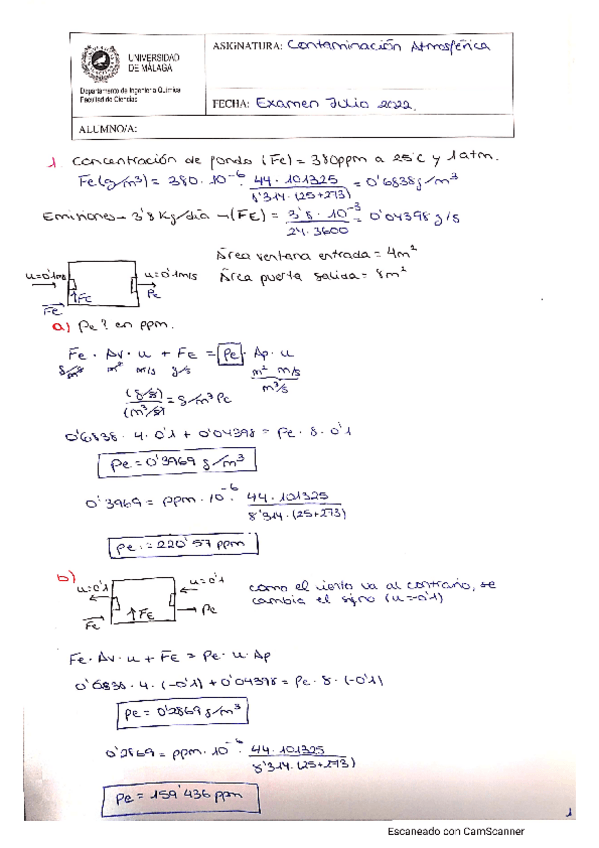 UNIVERSIDAD
DE MÁLAGA
Departamento de Ingeniería Química
Facultad de Ciencias
ASIGNATURA: Contaminación Atmosférica
FECHA: Examen Julio 2022.
ALUMNO/A:
1 Concentración de fondo (Fc) = 380ppm a 25°C y 1 atm.
Fc(g/m³) = 380 · 10⁻⁶ · 44 · 101325 / 8'314 · (25+273) = 0'6838 g/m³
Emisiones → 3'8 Kg/día → (FE) = 3'8 · 10⁻³ / 24 · 3600 = 0'04398 g/s
Área ventana entrada = 4m²
u=0'1m/s
u=0'1m/s
Área puerta salida = 8m²
↑Fc
Pc
Fc
a) Pc? en ppm.
Fc · Av · u + FE = Pc · Ap · u
g/m³ m² m/s g/s m² m/s
m³/s
(g/s) / (m³/s) = g/m³ Pc
0'6838 · 4 · 0'1 + 0'04398 = Pc · 8 · 0'1
Pc = 0'3969 g/m³
0'3969 = ppm · 10⁻⁶ · 44 · 101325 / 8'314 · (25+273)
Pc = 220'57 ppm
b)
u=0'1
u=0'1
como el viento va al contrario, se
cambia el signo (u=-0'1)
Fc
↑FE
Pc
Fc · Av · u + FE = Pc · u · Ap
0'6838 · 4 · (-0'1) + 0'04398 = Pc · 8 · (-0'1)
Pc = 0'2869 g/m³
0'2869 = ppm · 10⁻⁶ · 44 · 101325 / 8'314 · (25+273)
Pc = 159'436 ppm
1
Escaneado con CamScanner